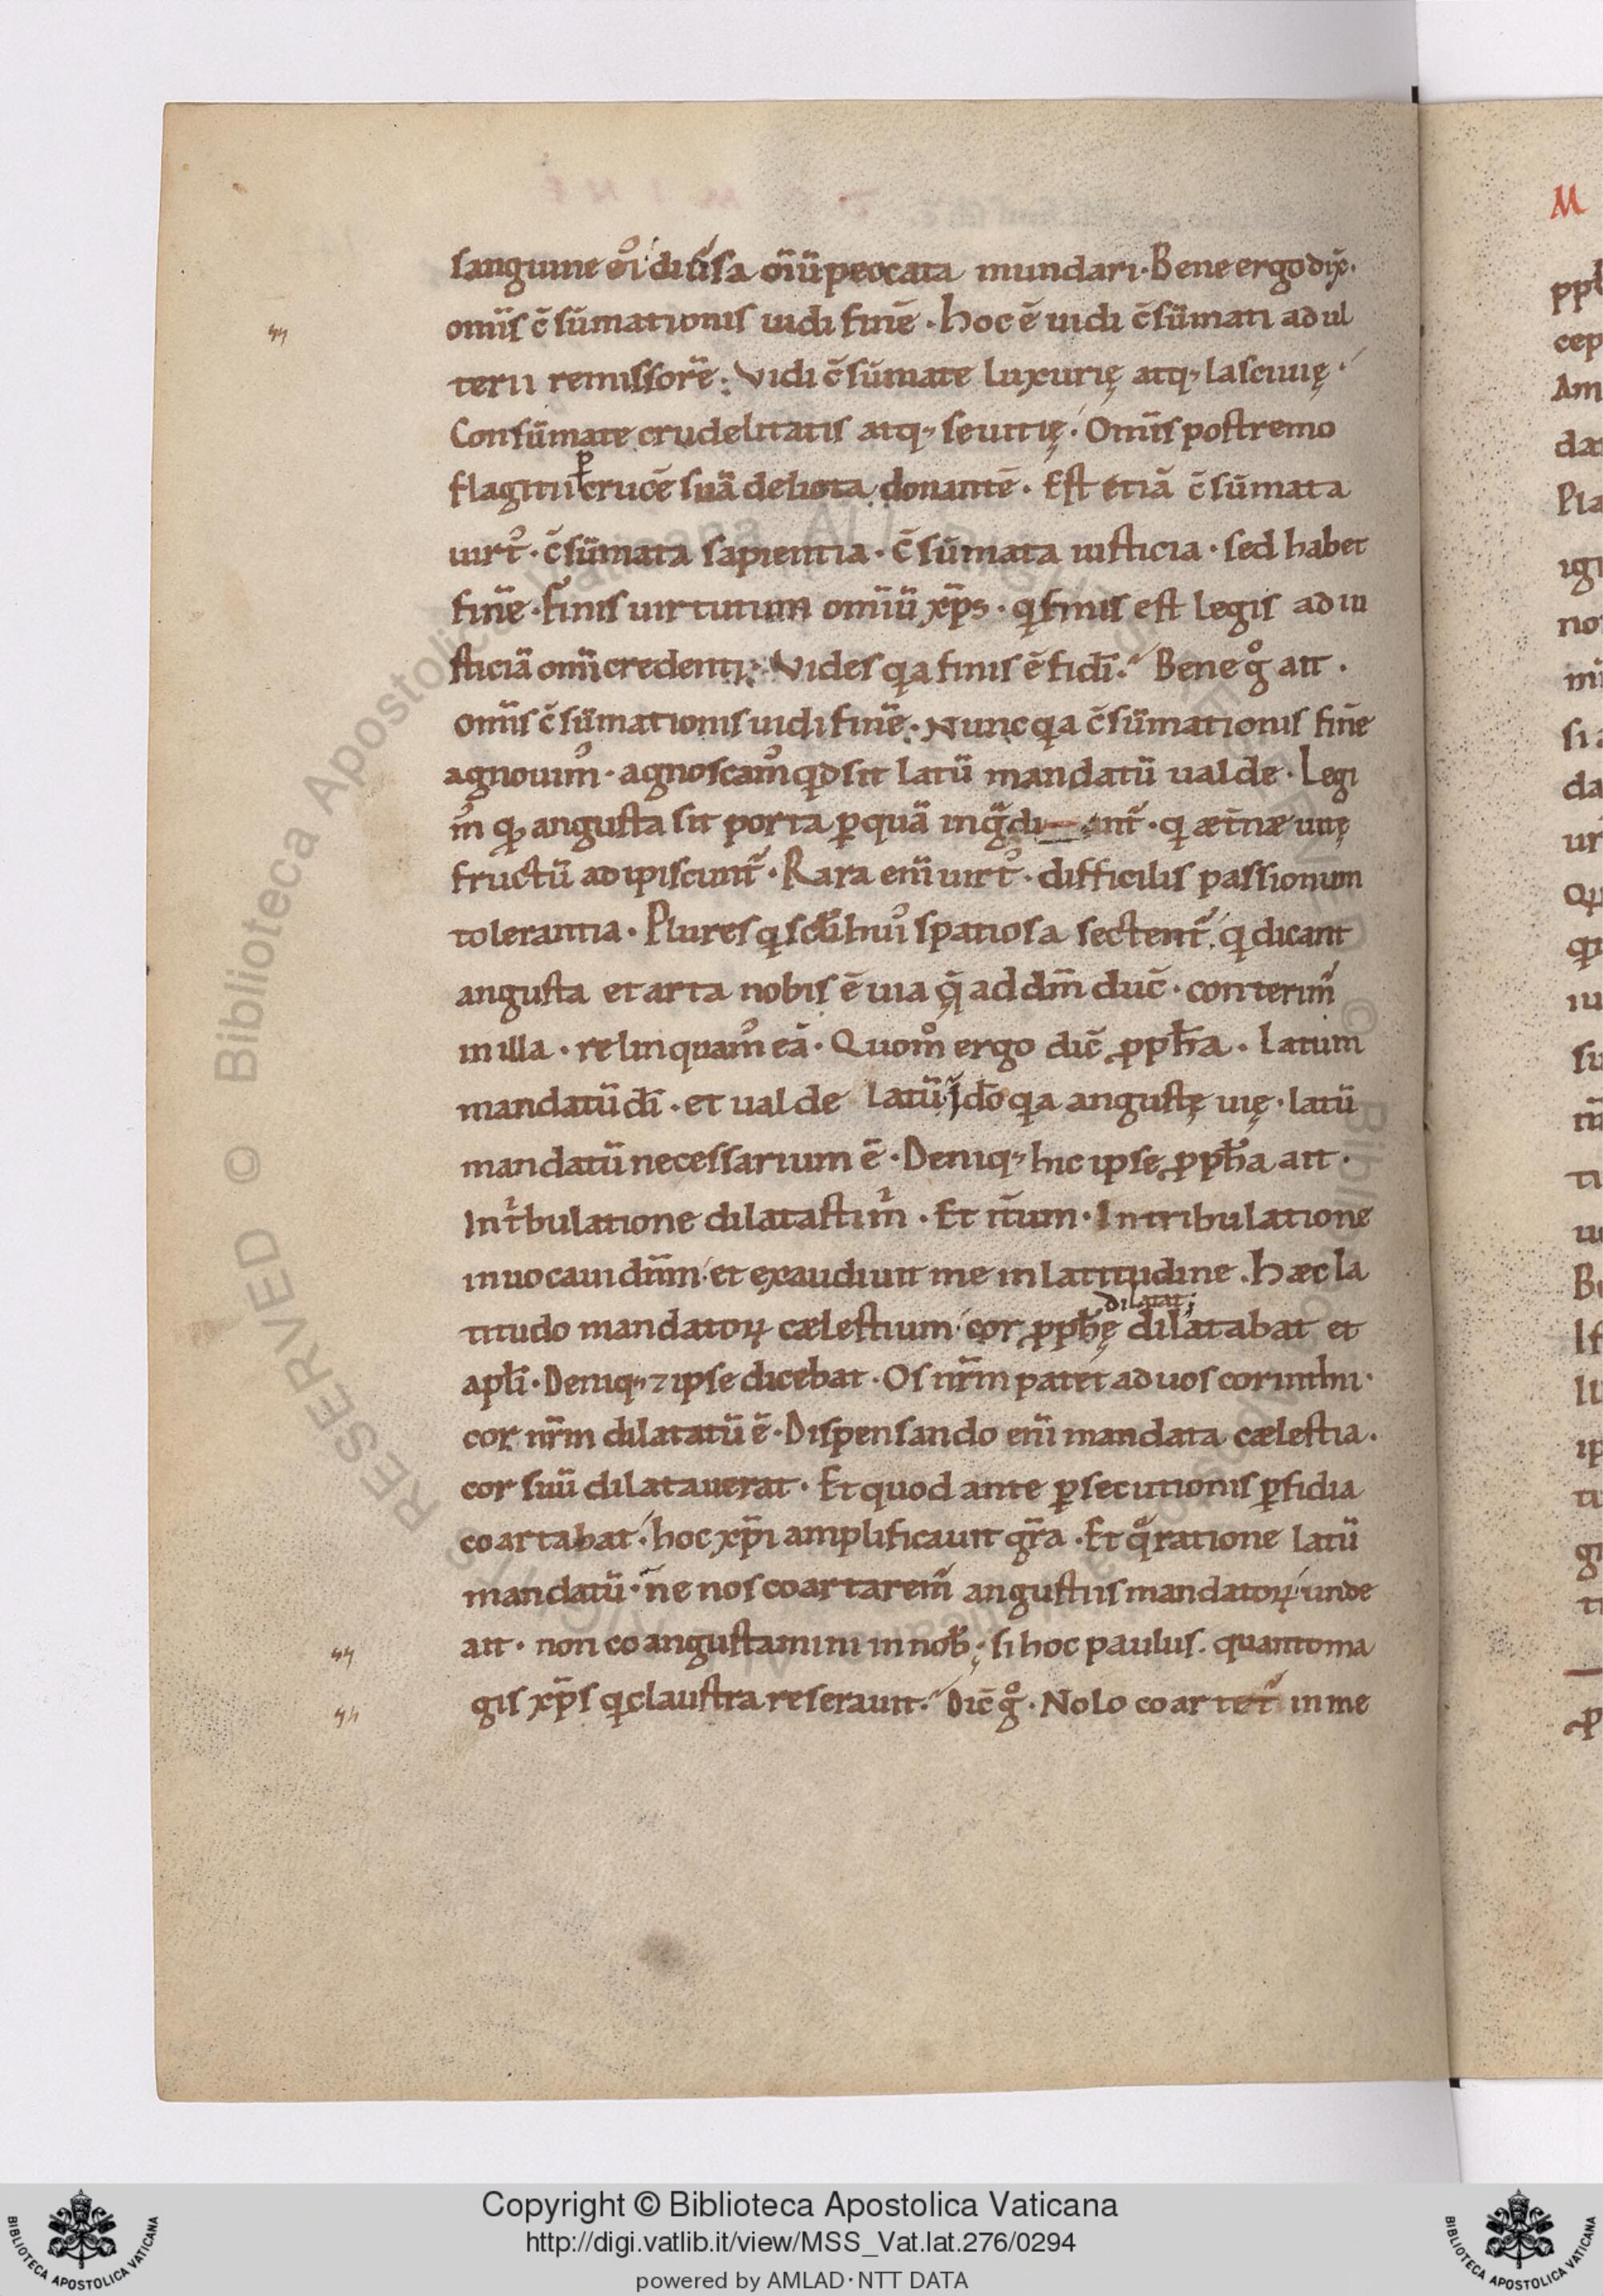 sanguine diuersa om̅iu̅ peccata mundari · Bene ergo dix̅ ·
om̅is c̅su̅mationis uidi fine̅ · hoc e̅ uidi c̅su̅mati adul
terii remissore̅ : Vidi c̅su̅mate luxurię atq; lasciuię ·
Consu̅mate crudelitatis atq; seuitię · Om̅is postremo
flagitii ꝑ cruce̅ sua̅ delicta donante̅ · Est etia̅ c̅su̅mata
uirtꝰ · c̅su̅mata sapientia · c̅su̅mata iusticia · sed habet
fine̅ · finis uirtutum omniu̅ xp̅s · q finis est legis ad iu
sticia̅ omi̅ credenti · Vides qa finis e̅ fidei̅ · Bene gͦ ait ·
om̅is c̅su̅mationis uidi fine̅ · Nunc qa c̅su̅mationis fine̅
agnouimꝰ · agnoscamꝰ qd sit latu̅ mandatu̅ ualde · Legi
mꝰ qꝫ angusta sit porta ꝑ qua̅ ingͣdi ant̅ · q æt̅næ uitę
fructu̅ adipiscunt̅ · Rara eni̅ uirtꝰ · difficilis passionum
tolerantia · Plures q sc̅li huiꝰ spatiosa sectent̅ · q dicant
angusta et arta nobis e̅ uia q̅ ad dm̅ duc̅ · conterim̅
in illa · relinquamꝰ ea̅ · Quomͦ ergo dic̅ ꝓph̅a · Latum
mandatu̅ di̅ · et ualde latu̅ · Ido̅ qa angustę uię · latu̅
mandatu̅ necessarium e̅ · Deniq; hic ipse ꝓph̅a ait ·
In tͥbulatione dilatasti mͥ · Et it̅um · In tribulatione
inuocaui dn̅m · et exaudiuit me in latitudine · hæc la
titudo mandatoꝝ cælestium · cor ꝓph̅ę dilatabat et
dilatat;
apli̅ · Deniq; ⁊ ipse dicebat · Os nr̅m patet ad uos corinthii ·
cor nr̅m dilatatu̅ e̅ · Dispensando eni̅ mandata cælestia ·
cor suu̅ dilatauerat · Et quod ante ꝑsecutionis ꝑfidia
coartabat · hoc xp̅i amplificauit gr̅a · Et qͣ ratione latu̅
mandatu̅ · ne nos coartarem̅ angustiis mandatoꝝ · unde
ait · non coangustamini in nob̅ · si hoc paulus · quanto ma
gis xp̅s q claustra reserauit · Dic̅ gͦ · Nolo coartet̅ in me
Copyright © Biblioteca Apostolica Vaticana
http://digi.vatlib.it/view/MSS_Vat.lat.276/0294
powered by AMLAD·NTT DATA
BIBLIOTECA APOSTOLICA VATICANA
BIBLIOTECA APOSTOLICA VATICANA